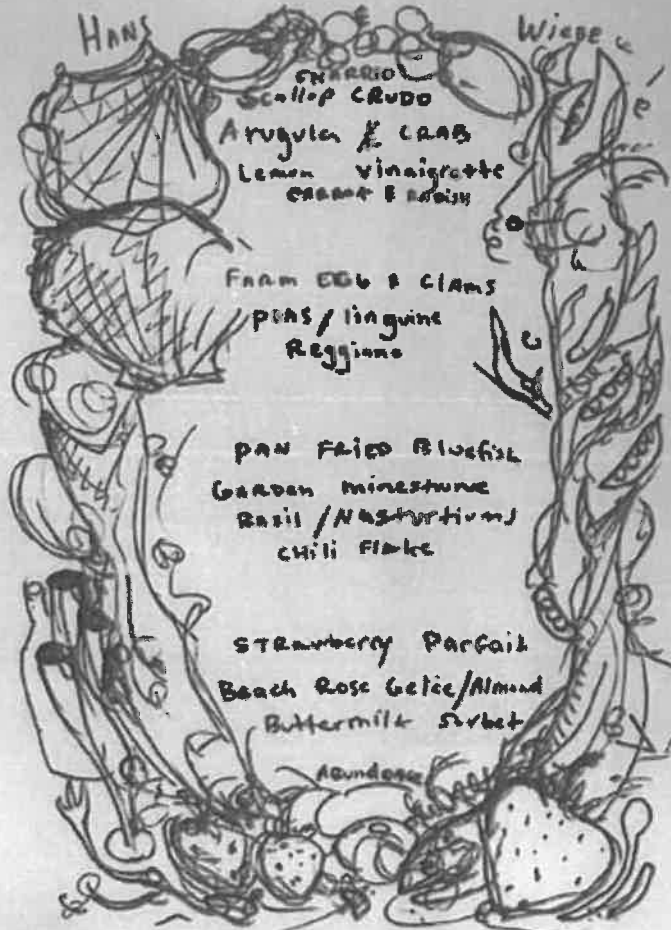 HANS
Wiebe
CHARRED
Scallop CRUDO
Arugula & CRAB
Lemon vinaigrette
CARROT & RADISH
FARM EGG & CLAMS
PEAS / linguine
Reggiano
PAN FRIED Bluefish
GARDEN minestrone
Basil / Nasturtiums
CHili Flake
STRAwberry Parfait
Beach Rose Gelée/Almond
Buttermilk Sorbet
Abundance